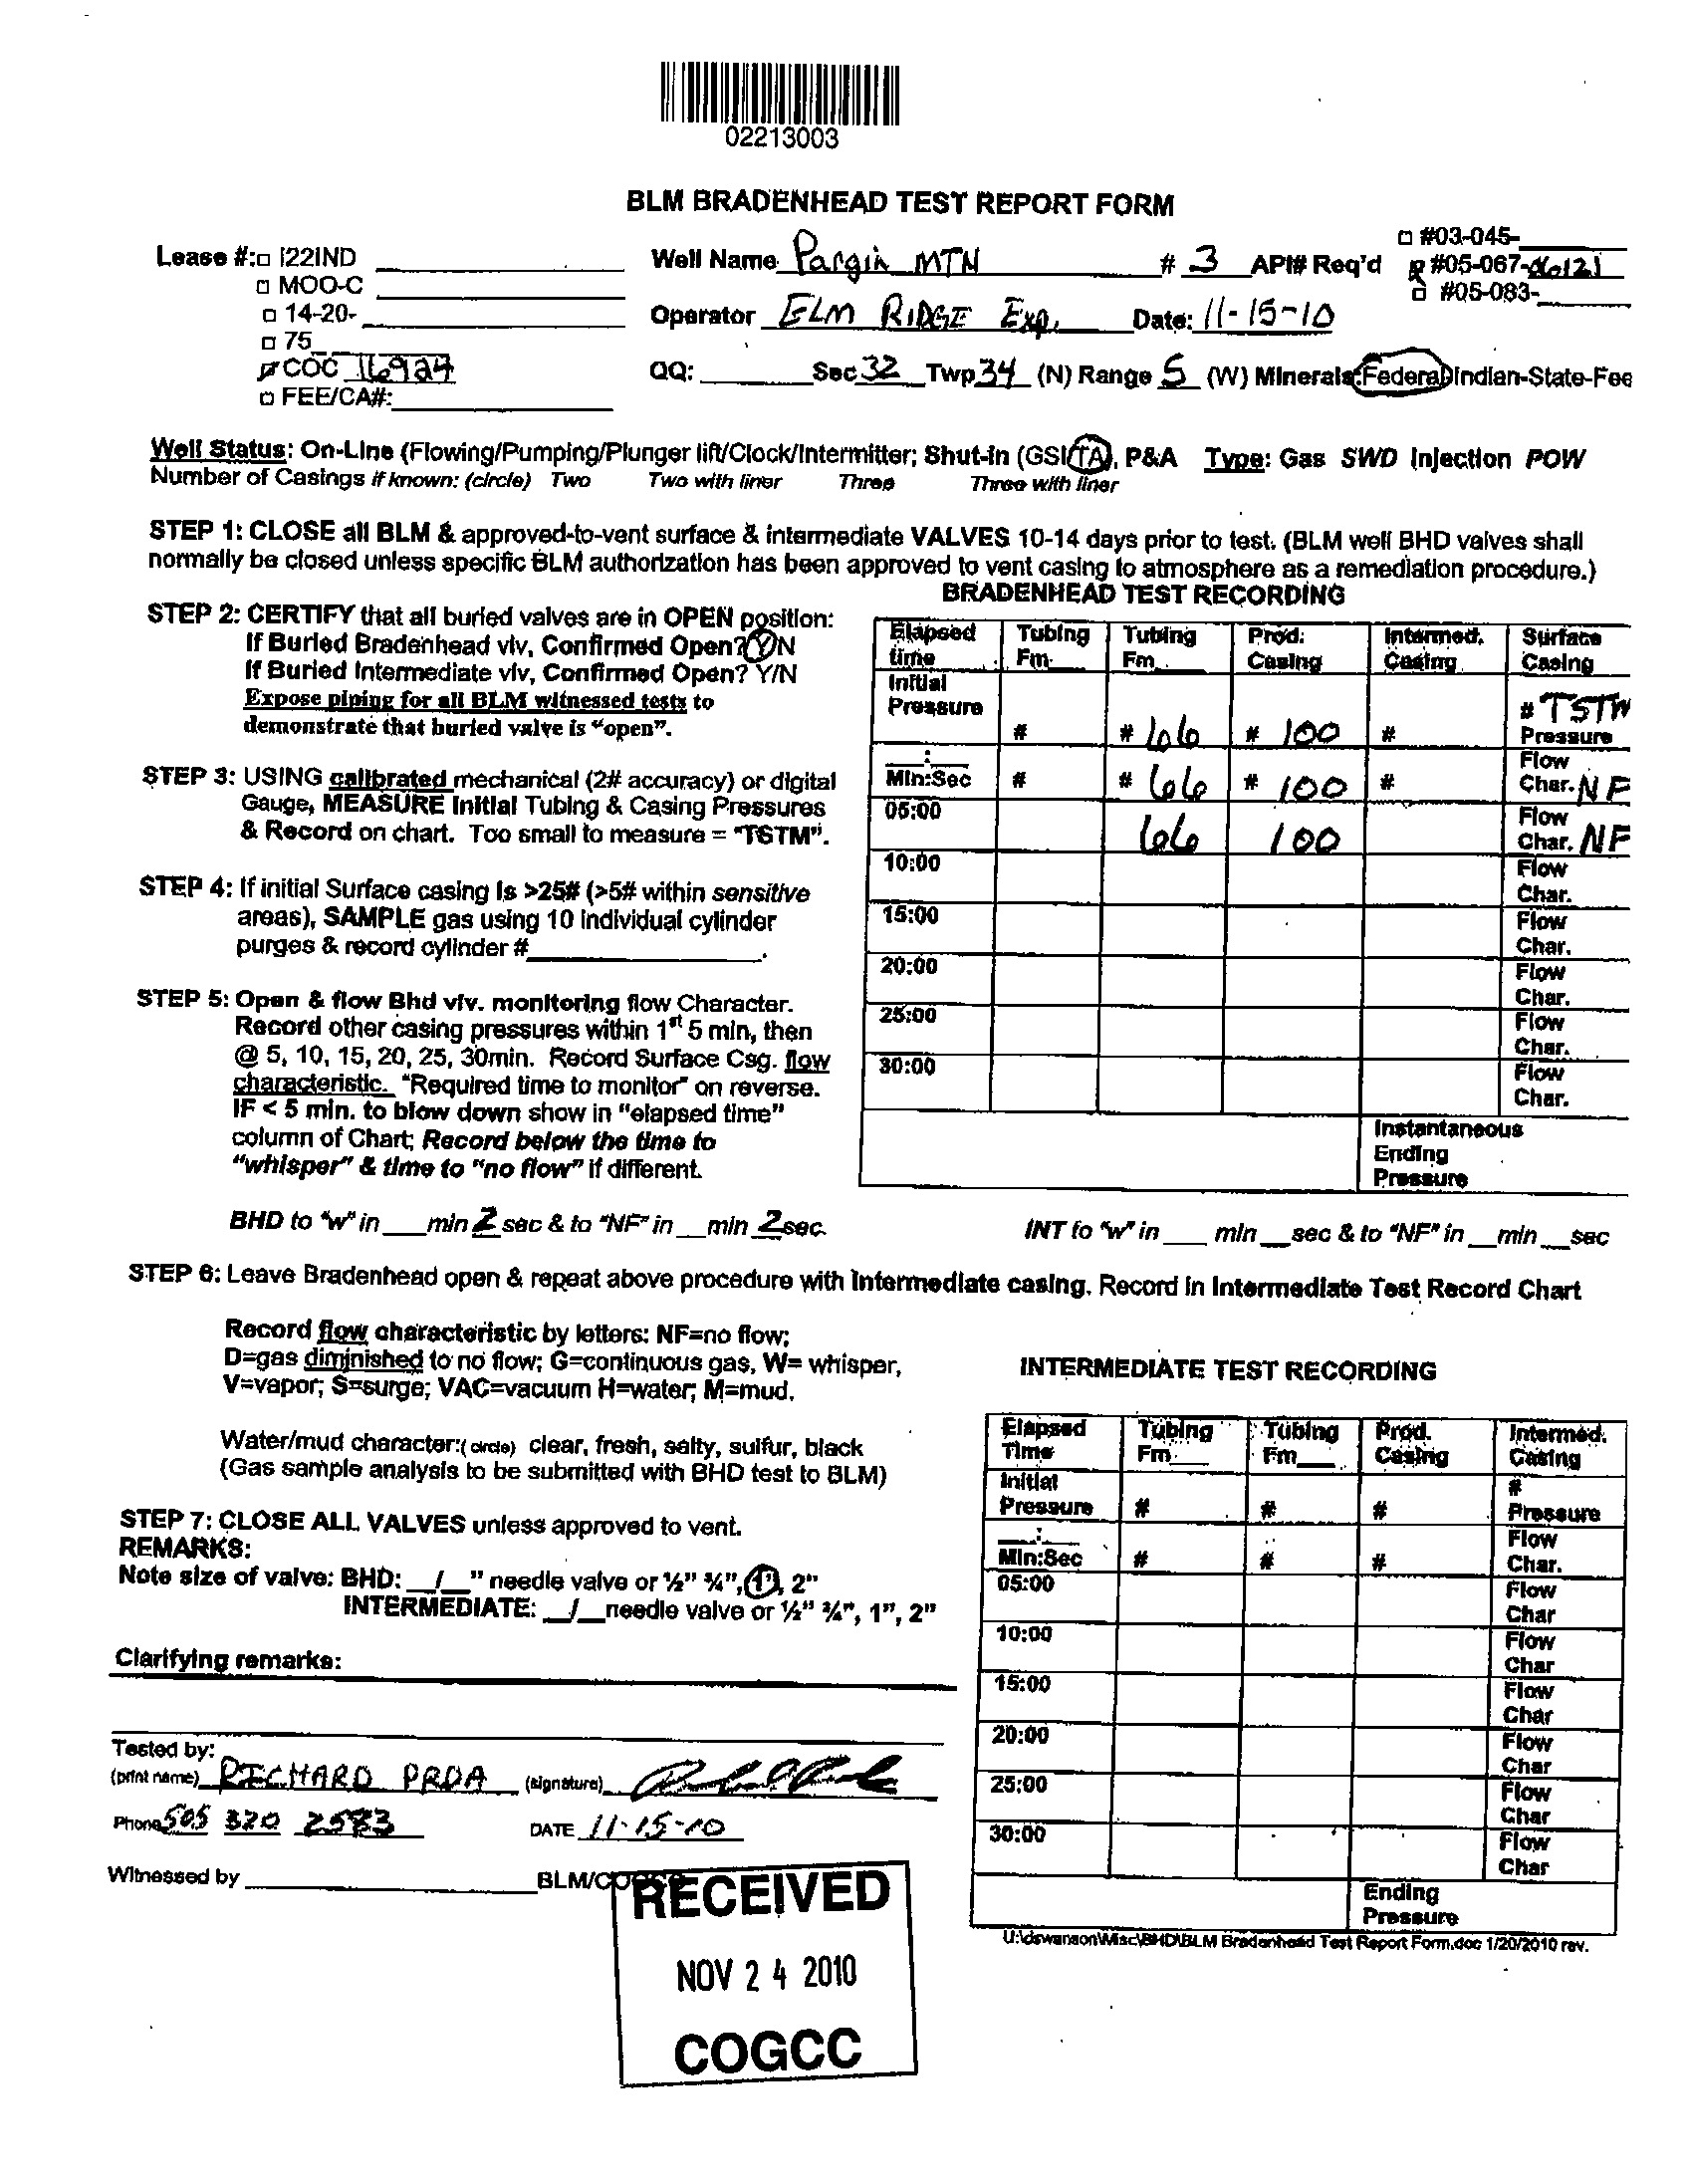 02213003
BLM BRADENHEAD TEST REPORT FORM
Lease #:□ I22IND
□ MOO-C
□ 14-20-
□ 75
COC 16924
□ FEE/CA#:
Well Name Pargin MTN # 3 API# Req'd
□ #03-045-
#05-067-06121
□ #05-083-
Operator ELM RIDGE Exp. Date: 11-15-10
QQ: Sec 32 Twp 34 (N) Range 5 (W) Minerals: Federal Indian-State-Fee
Well Status: On-Line (Flowing/Pumping/Plunger lift/Clock/Intermitter; Shut-in (GSI/TA), P&A Type: Gas SWD Injection POW
Number of Casings if known: (circle) Two Two with liner Three Three with liner
STEP 1: CLOSE all BLM & approved-to-vent surface & intermediate VALVES 10-14 days prior to test. (BLM well BHD valves shall
normally be closed unless specific BLM authorization has been approved to vent casing to atmosphere as a remediation procedure.)
STEP 2: CERTIFY that all buried valves are in OPEN position:
If Buried Bradenhead vlv, Confirmed Open? Y/N
If Buried Intermediate vlv, Confirmed Open? Y/N
Expose piping for all BLM witnessed tests to
demonstrate that buried valve is "open".
STEP 3: USING calibrated mechanical (2# accuracy) or digital
Gauge, MEASURE Initial Tubing & Casing Pressures
& Record on chart. Too small to measure = "TSTM".
STEP 4: If initial Surface casing is >25# (>5# within sensitive
areas), SAMPLE gas using 10 individual cylinder
purges & record cylinder #
STEP 5: Open & flow Bhd vlv. monitoring flow Character.
Record other casing pressures within 1st 5 min, then
@ 5, 10, 15, 20, 25, 30min. Record Surface Csg. flow
characteristic. "Required time to monitor" on reverse.
IF < 5 min. to blow down show in "elapsed time"
column of Chart; Record below the time to
"whisper" & time to "no flow" if different.
BRADENHEAD TEST RECORDING
Elapsed time Tubing Fm Tubing Fm Prod. Casing Intermed. Casing Surface Casing
Initial Pressure # # 66 # 100 # # TSTM Pressure
__:__ Min:Sec # # 66 # 100 # Flow Char. NF
05:00 66 100 Flow Char. NF
10:00 Flow Char.
15:00 Flow Char.
20:00 Flow Char.
25:00 Flow Char.
30:00 Flow Char.
Instantaneous Ending Pressure
BHD to "w" in ___ min 2 sec & to "NF" in __ min 2 sec.
INT to "w" in ___ min __ sec & to "NF" in __ min __ sec
STEP 6: Leave Bradenhead open & repeat above procedure with Intermediate casing. Record in Intermediate Test Record Chart
Record flow characteristic by letters: NF=no flow;
D=gas diminished to no flow; G=continuous gas, W= whisper,
V=vapor; S=surge; VAC=vacuum H=water; M=mud.
Water/mud character:(circle) clear, fresh, salty, sulfur, black
(Gas sample analysis to be submitted with BHD test to BLM)
STEP 7: CLOSE ALL VALVES unless approved to vent.
REMARKS:
Note size of valve: BHD: __/__" needle valve or ½" ¾", 1", 2"
INTERMEDIATE: __/__needle valve or ½" ¾", 1", 2"
Clarifying remarks:
INTERMEDIATE TEST RECORDING
Elapsed Time Tubing Fm___ Tubing Fm___ Prod. Casing Intermed. Casing
Initial Pressure # # # # Pressure
__:__ Min:Sec # # # Flow Char.
05:00 Flow Char
10:00 Flow Char
15:00 Flow Char
20:00 Flow Char
25:00 Flow Char
30:00 Flow Char
Ending Pressure
Tested by:
(print name) RICHARD PRDA (signature)
Phone 505 320 2583 DATE 11-15-10
Witnessed by BLM/COGCC
RECEIVED
NOV 24 2010
COGCC
U:\dswanson\Misc\BHD\BLM Bradenhead Test Report Form.doc 1/20/2010 rev.